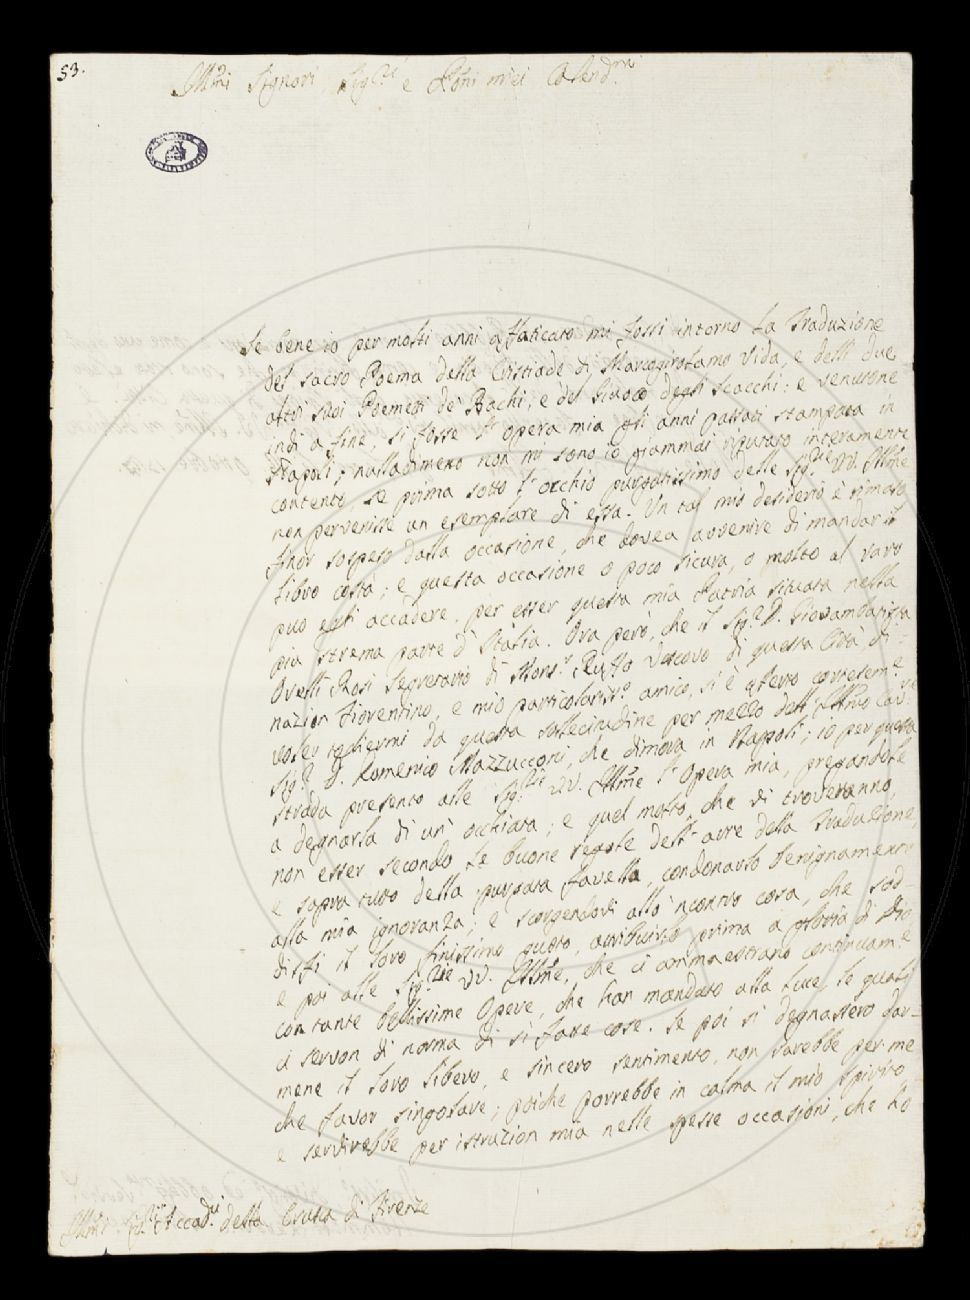 53.
Ill.mi Signori, Sig.ri e P̃roni miei Colend.mi
Se bene io per molti anni affaticato mi fossi intorno la Traduzione
del sacro Poema della Cristiade di Marcogirolamo Vida, e delli due
altri suoi Poemetti de' Bachi, e del Giuoco degli Scacchi; e venutone
indi a fine, si fosse l'opera mia gli anni passati stampata in
Napoli; nulladimeno non mi sono io giammai riputato interamente
contento, se prima sotto l'occhio purgatissimo delle Sig.rie VV. Ill̃me
non pervenisse un esemplare di essa. Un tal mio desiderio è rimaso
finor sospeso dalla occasione, che dovea avvenire di mandar il
libro costà; e questa occasione o poco sicura, o molto al raro
può egli accadere, per esser questa mia Patria situata nella
più strema parte d'Italia. Ora però, che il Sig.r D. Giovambatista
Ovelli Rosi Segretario di Mons.r Ruffo Vescovo di questa Città, di
nazion Fiorentino, e mio particolariss.o amico, si è offerto cortesem.e
voler togliermi da questa sollecitudine per mezzo dell'Ill̃mo Cav.re
Sig.r D. Domenico Mazzucconi, che dimora in Nappoli; io per questa
strada presento alle Sig.rie VV. Ill̃me l'Opera mia, pregandole
a degnarla di un' occhiata; e quel molto, che vi troveranno,
non esser secondo le buone regole dell'arte della Traduzione,
e sopra tutto della purgata favella, condonarlo benignamente
alla mia ignoranza; e scorgendovi allo 'ncontro cosa, che sod-
disfi il loro finissimo gusto, attribuirlo prima a gloria di Dio
e poi alle Sig.rie VV. Ill̃me, che ci ammaestrano continuam.e
con tante bellissime Opere, che han mandato alla luce, le quali
ci servon di norma di sì fatte cose. Se poi si degnassero dar-
mene il loro libero, e sincero sentimento, non sarebbe per me
che favor singolare; poiche porrebbe in calma il mio spirito,
e servirebbe per istruzion mia nelle spesse occasioni, che ho
Ill.mi Sig.ri Accad.ci della Crusca di Firenze